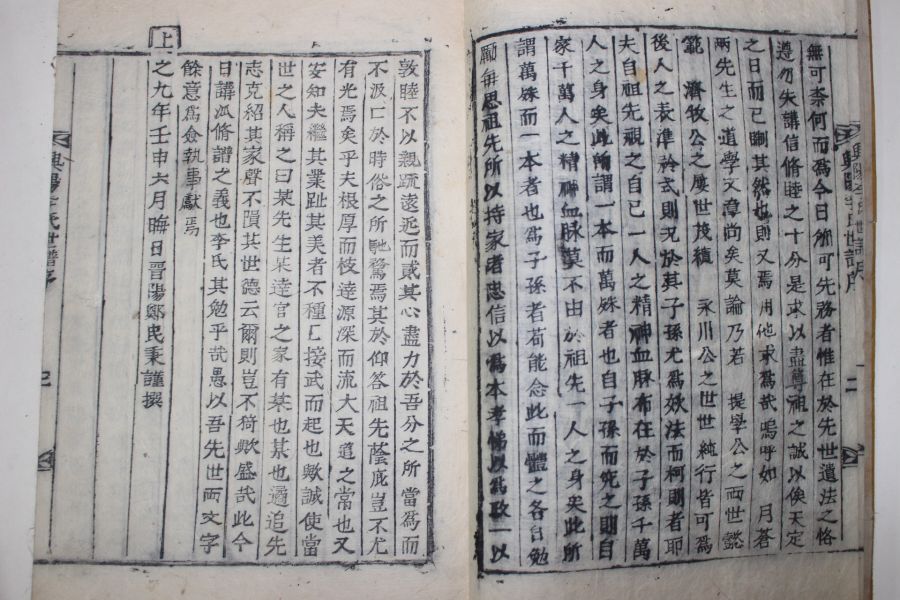 無可柰何而爲今日所可先務者惟在於先世遺法之恪
遵勿失講信脩睦之十分是求以盡尊祖之誠以俟天定
之日而已嗣其然也則又焉用他求爲哉嗚呼如 月菴
兩先生之道學文章尚矣莫論乃若 提學公之兩世懿
範 濟牧公之屢世茂績 永川公之世世純行皆可爲
後人之表準矜式則況於其子孫尤爲妙法而柯則者耶
夫自祖先視之自己一人之精神血脉布在於子孫千萬
人之身矣此所謂一本而萬殊者也自子孫而視之則自
家千萬人之精神血脉莫不由於祖先一人之身矣此所
謂萬殊而一本者也爲子孫者苟能念此而體之各自勉
勵每思祖先所以持家者忠信以爲本孝悌以爲政一以
興陽李氏世譜序
二
敦睦不以親疏遠近而貳其心盡力於吾分之所當爲而
不汲匸於時俗之所馳騖焉其於仰答祖先蔭庇豈不尤
有光焉矣乎夫根厚而枝達源深而流大天道之常也又
安知夫繼其業趾其美者不種匸接武而起也歟誠使當
世之人稱之曰某先生某達官之家有某也某也遹追先
志克紹其家聲不隕其世德云爾則豈不猗歟盛哉此今
日講派脩譜之義也李氏其勉乎哉愚以吾先世两文字
餘意爲僉執事獻焉
上
之九年壬申六月晦日晋陽鄭民秉謹撰
興陽李氏世譜序